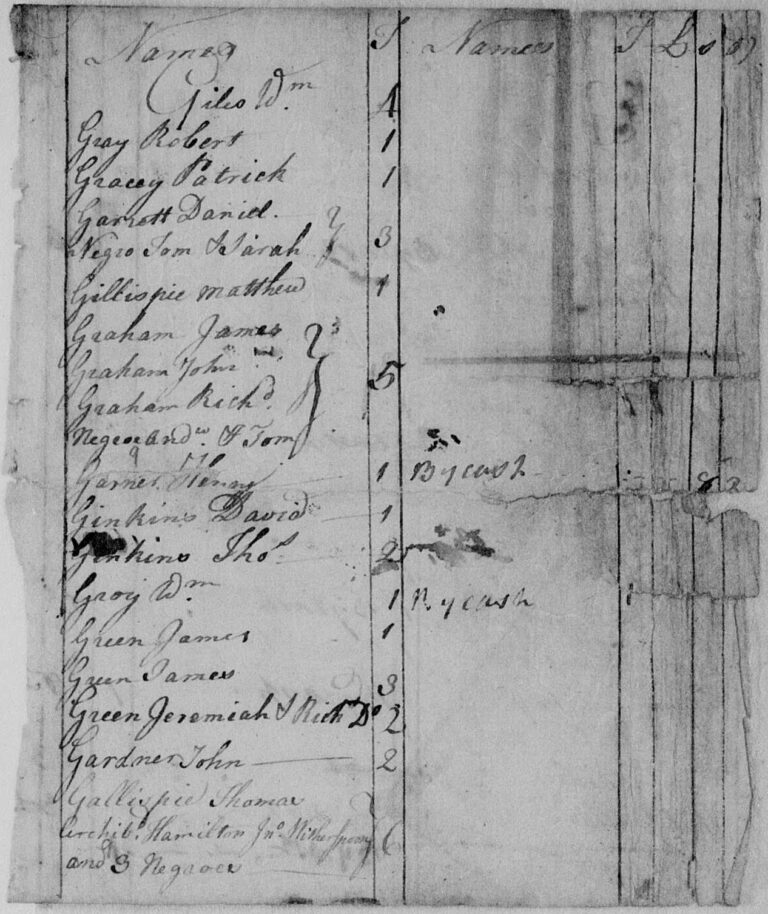 Names T Names T L s d
Giles Wm 4
Gray Robert 1
Gracey Patrick 1
Garrett Daniel
Negro Tom & Sarah 3
Gillispie Matthew 1
Graham James
Graham John 5
Graham Richd
Negroe Andw & Tom
Garner Henry 1 By cash 1 8 2
Ginkins David 1
Ginkins Thos 2
Gray Wm 1 By cash 1
Green James 1
Green James 3
Green Jeremiah & Richd Do 2
Gardner John 2
Gallispie Thomas
Archibd Hamilton Jno Witherspoon 6
and 3 Negroes